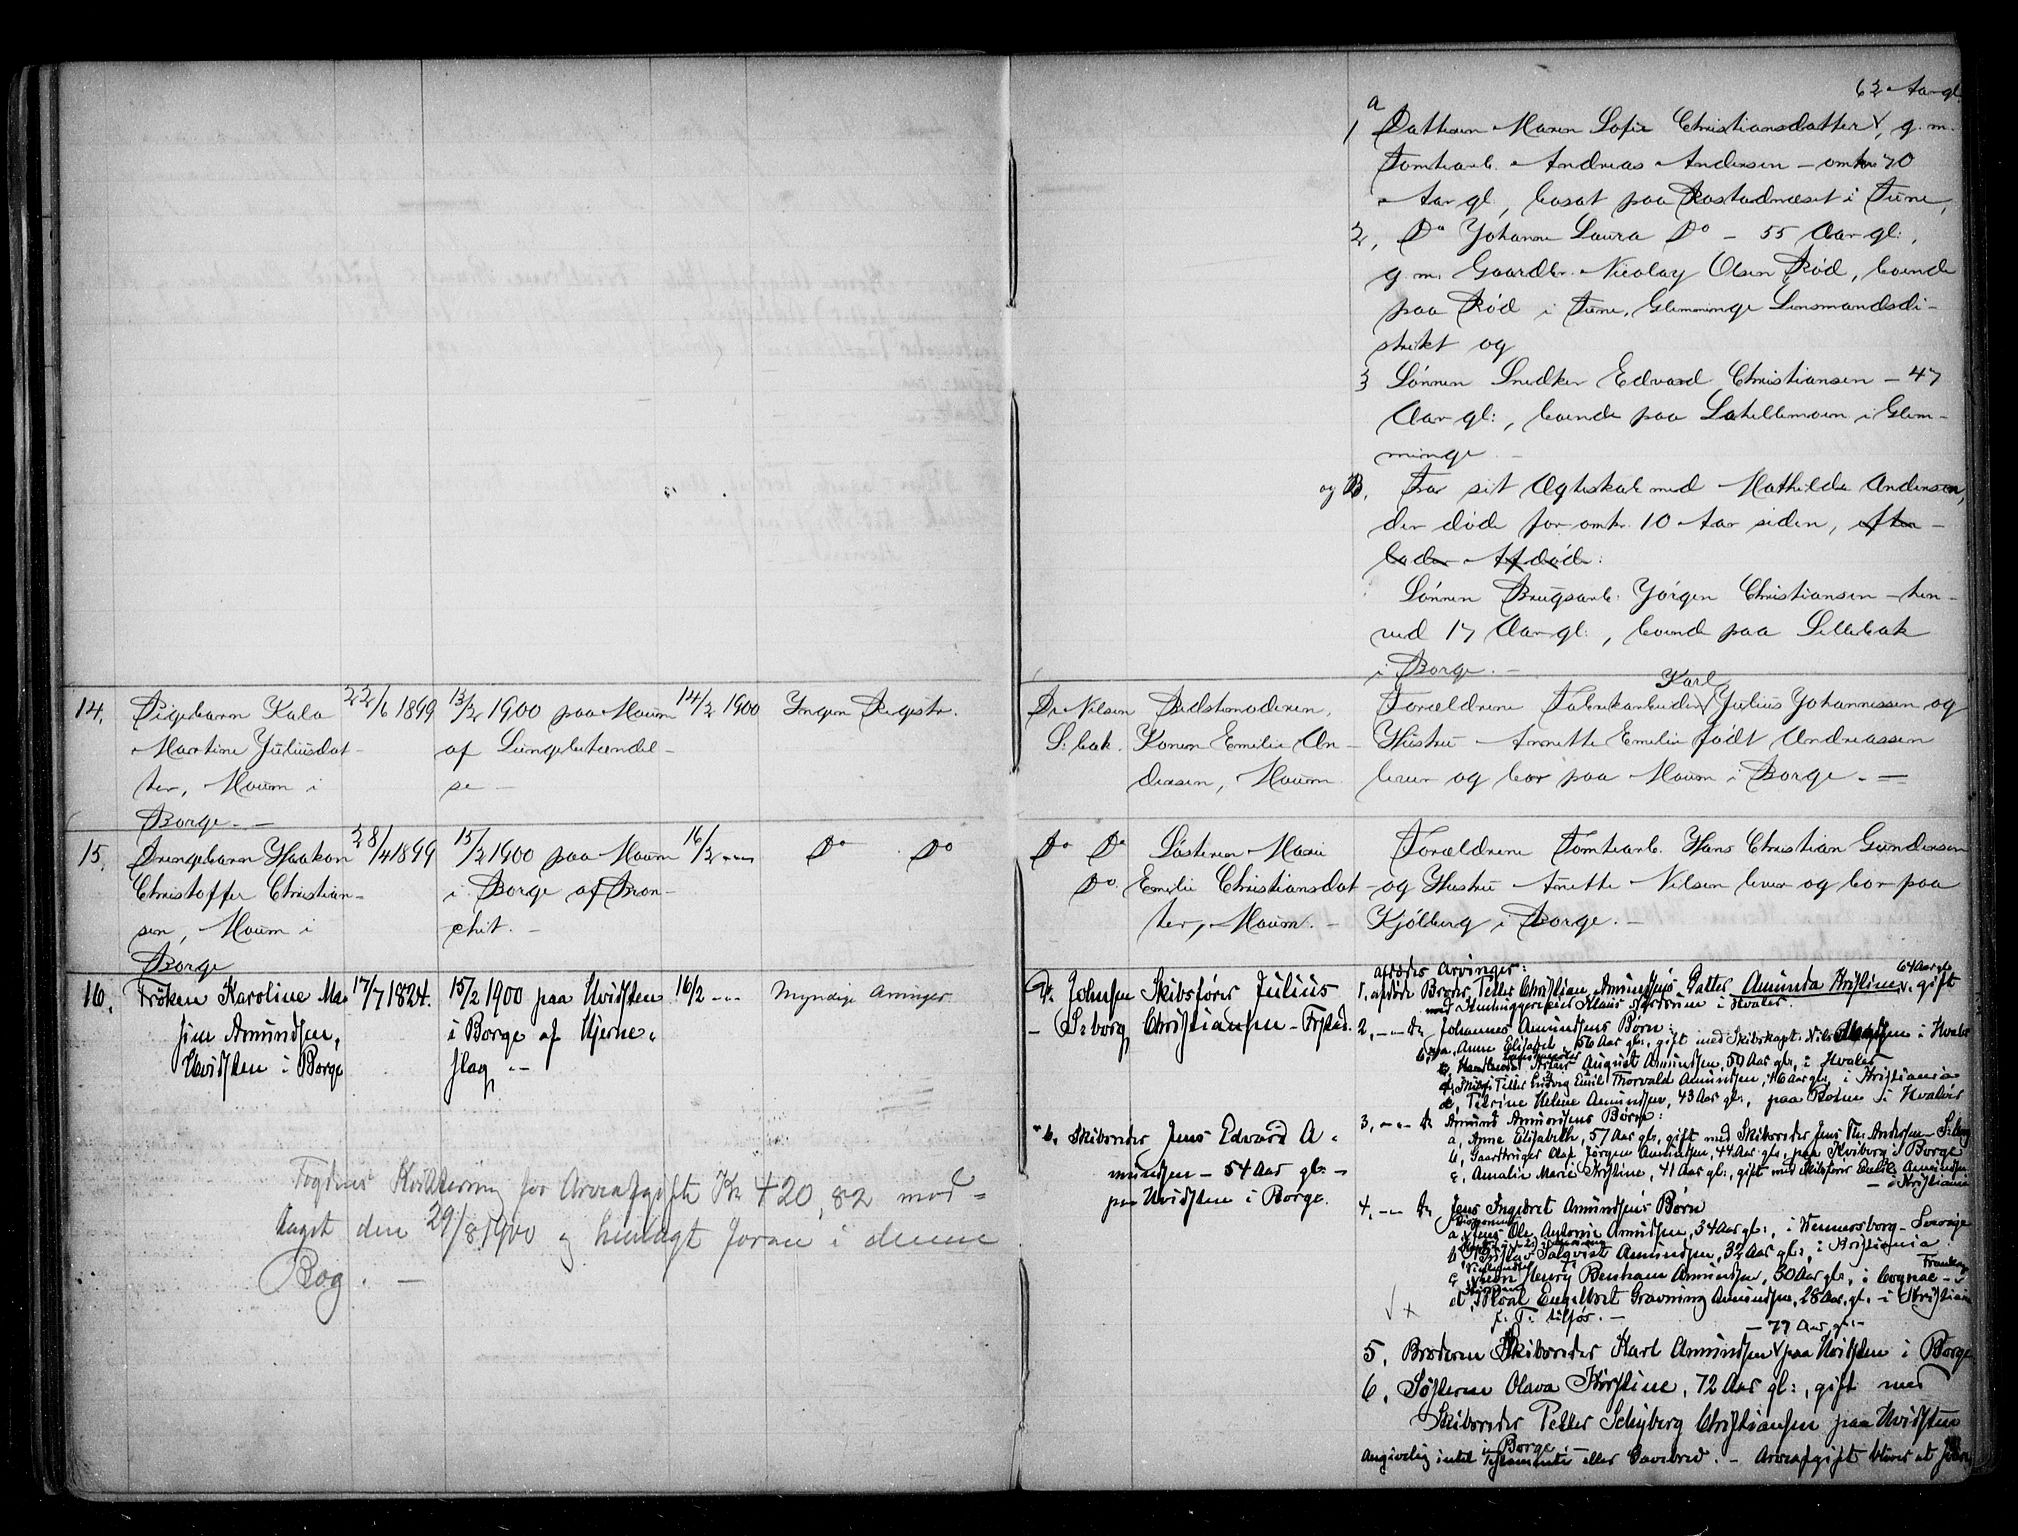 62 Aar gl.
a
1 Datteren Maren Sofie Christiansdatter V, g. m.
Tomtearb. Andreas Andersen – omkr 70
Aar gl, bosat paa Rostadnæset i Tune,
2, Do Johanne Laura Do – 55 Aar gl:,
g. m. Gaardbr. Nicolay Olsen Rød, boende
paa Rød i Tune, Glemminge Lensmandsdi-
strikt og
3 Sønnen Snedker Edvard Christiansen – 47
Aar gl:, boende paa Labellmoen i Glem-
minge –
og B. Fra sit Ægteskab med Mathilde Andersen,
der døde for omkr. 10 Aar siden, efter-
lader Afdøde:
Sønnen Brugsarb. Jørgen Christiansen – hen-
ved 17 Aar gl:, boende paa Sellebak
i Borge. –
14. Pigebarn Kala
Martine Juliusdat-
ter, Moum i
Borge. –
22/6 1899
13/2 1900 paa Moum
af Lungebetændel-
se –
14/2 1900
Ingen Registr.
Dr Nilsen
S: bak.
Bedstemoderen,
Konen Emilie An-
dersen, Moum.
Forældrene Fabrikarbeider V Karl Julius Johannessen og
Hustru Annette Emilie født Andreassen
lever og bor paa Moum i Borge. –
15. Drengebarn Haakon
Christoffer Christian-
sen, Moum i
Borge
28/4 1899
15/2 1900 paa Moum
i Borge af Bron-
chit. –
16/2 –„–
Do Do
Do Do
Do.
Søsteren Marie
Emilie Christiansdat-
ter, Moum. –
Forældrene Tomtearb. Hans Christian Gundersen
og Hustru Anette Nilsen lever og bor paa
Kjølberg i Borge. –
16. Frøken Karoline Ma-
sine Amundsen,
Hvidsten i Borge
17/7 1824.
15/2 1900 paa Hvidsten
i Borge af Hjerne-
slag „–
16/2 –„–
Myndige Arvinger
Dr. Johnsen
– S:borg
Skibsfører Julius
Christiansen – Frstad.
"b, Skibsreder Jens Edvard A-
mundsen – 54 Aar gl: –
paa Hvidsten i Borge.
afdødes Arvinger:
1, afdøde Broder Petter Christian Amundsens Datter Amunda Kristine V 64 Aar gl. gift
med Klaus i Hvaler.
2, –„– Dr Johannes Amundsens Børn:
a, Anne Elisabet, 56 Aar gl:, gift med Skibskapt. Nils i Hvaler
August Amundsen, 50 Aar gl:, i Hvaler
Petter Ludvig Emil Thorvald Amundsen, 46 Aar gl., i Kristiania
Petrine Helene Amundsen, 43 Aar gl:, paa i Hvaler
3, –„– Dr Amund Amundsens Børn:
a, Anne Elisabeth, 57 Aar gl., gift med Skibsreder Jens Th: Andersen S:borg
b, Gaardbruger Olaf Jørgen Amundsen, 44 Aar gl., paa Kviberg i Borge
c, Amalie Marie Kristine, 41 Aar gl:, gift med Skibsfører Emil Amundsen
– i Kristiania
4, –„– Dr Jens Ingebret Amundsens Børn
a Jens Ole Antonie Amundsen, 34 Aar gl:, i Wennersborg – Sverige
b Amundsen, 32 Aar gl:, i Kristiania
c, Henry Bentham Amundsen, 30 Aar gl:, i Cognac – i Frankrige
d, Engelbret Gravning Amundsen, 28 Aar gl. – i Kristiania
p. T. tilsjøs. –
5, Broderen Skibsreder Karl Amundsen V – 77 Aar gl: – paa Hvidsten i Borge
6, Søsteren Olava Kirstine, 72 Aar gl:, gift med
Skibsreder Petter Schyberg Christiansen paa Hvidsten
i Borge –
Angivelig intet Testamente eller Gavebrev. – Arveafgift bliver at
Fogdens Kvittering for Arveafgift Kr 420,82 mod-
taget den 29/8 1900 og henlagt foran i denne
Bog. –